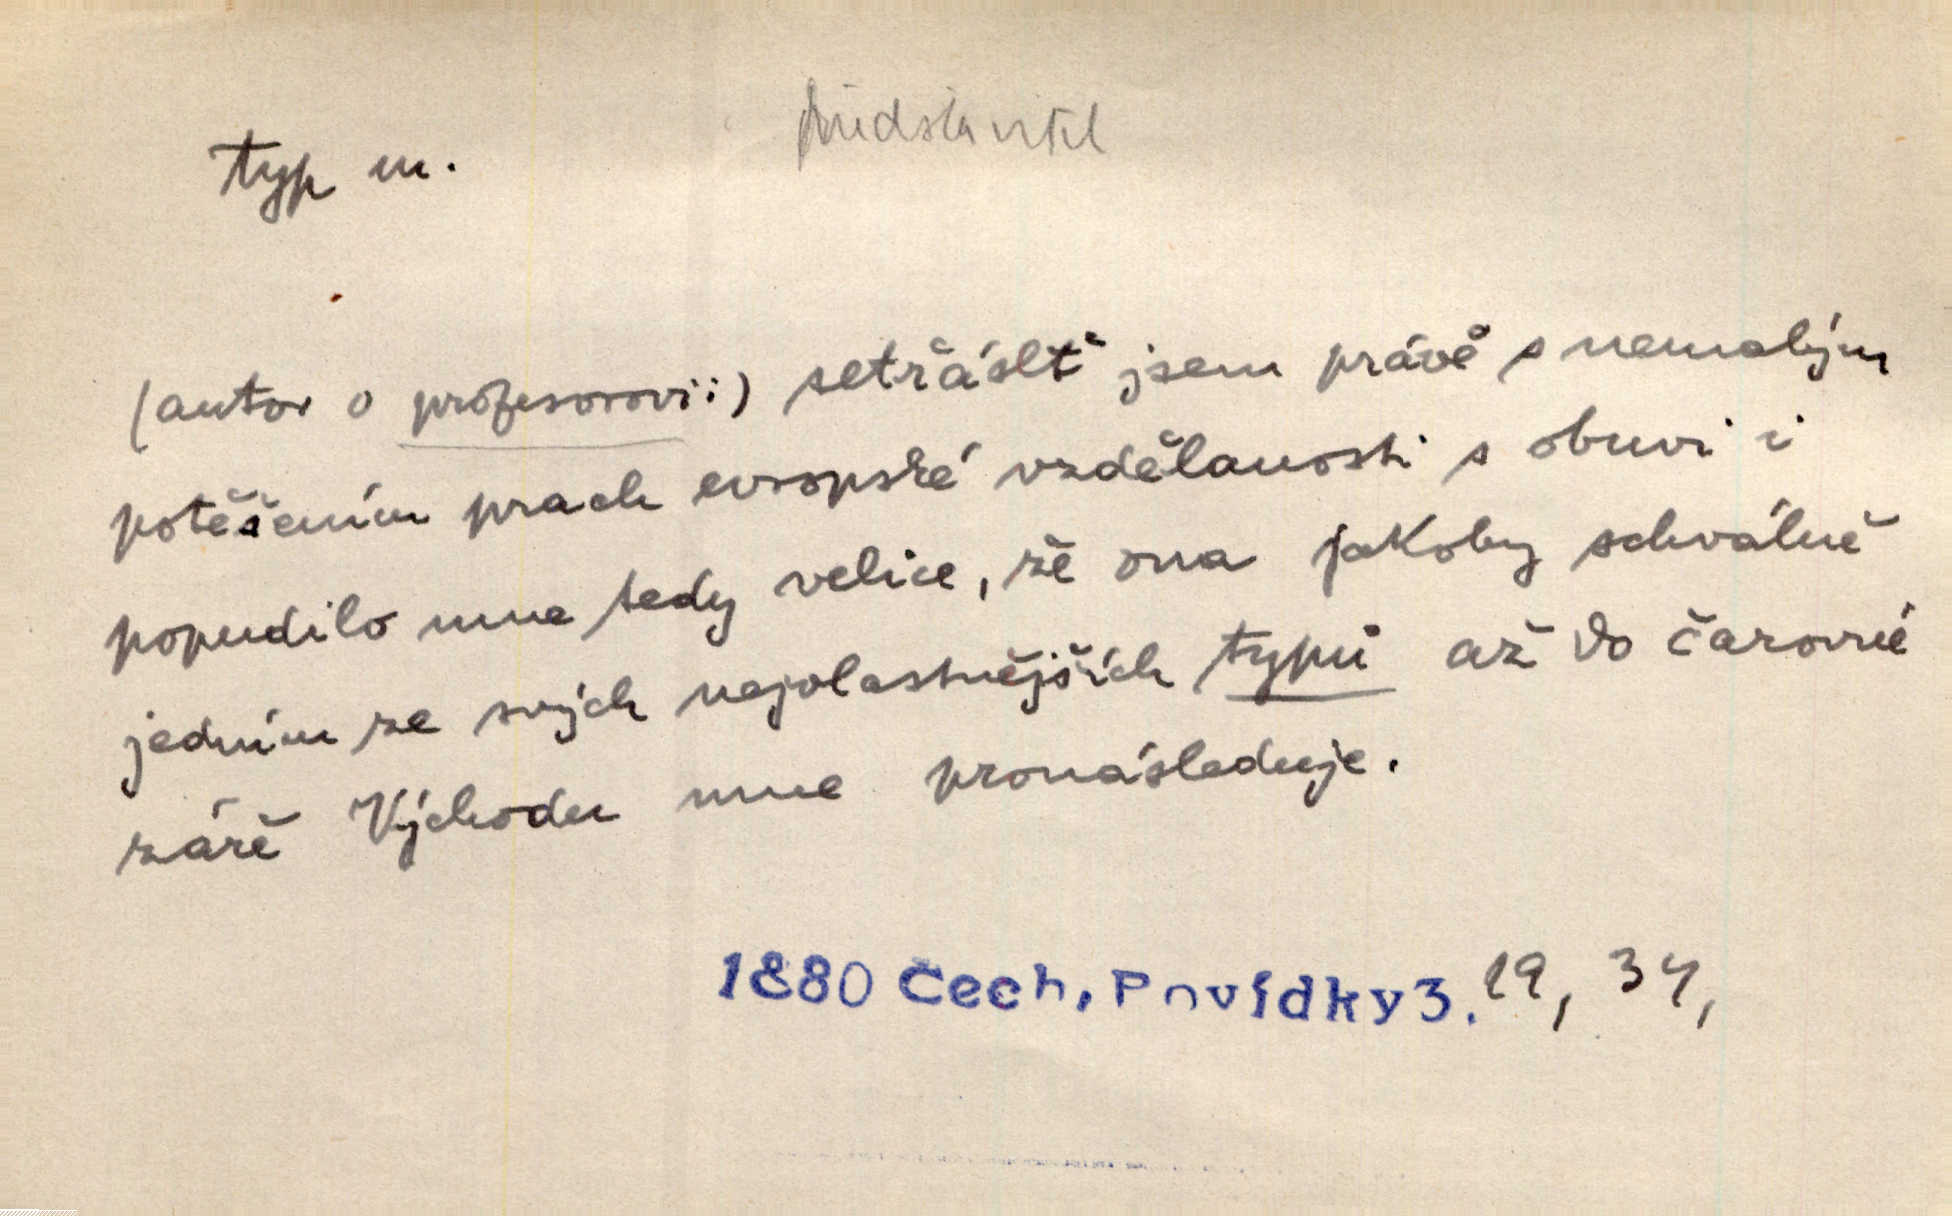 představitel
typ m.
(autor o profesorovi:) setřáslť jsem právě s nemalým
potěšením prach evropské vzdělanosti s obuvi i
popudilo mne tedy velice, že ona jakoby schválně
jedním ze svých nejvlastnějších typů až do čarovné
záře Východu mne pronásleduje.
1880 Čech, Povídky 3. 19, 34,